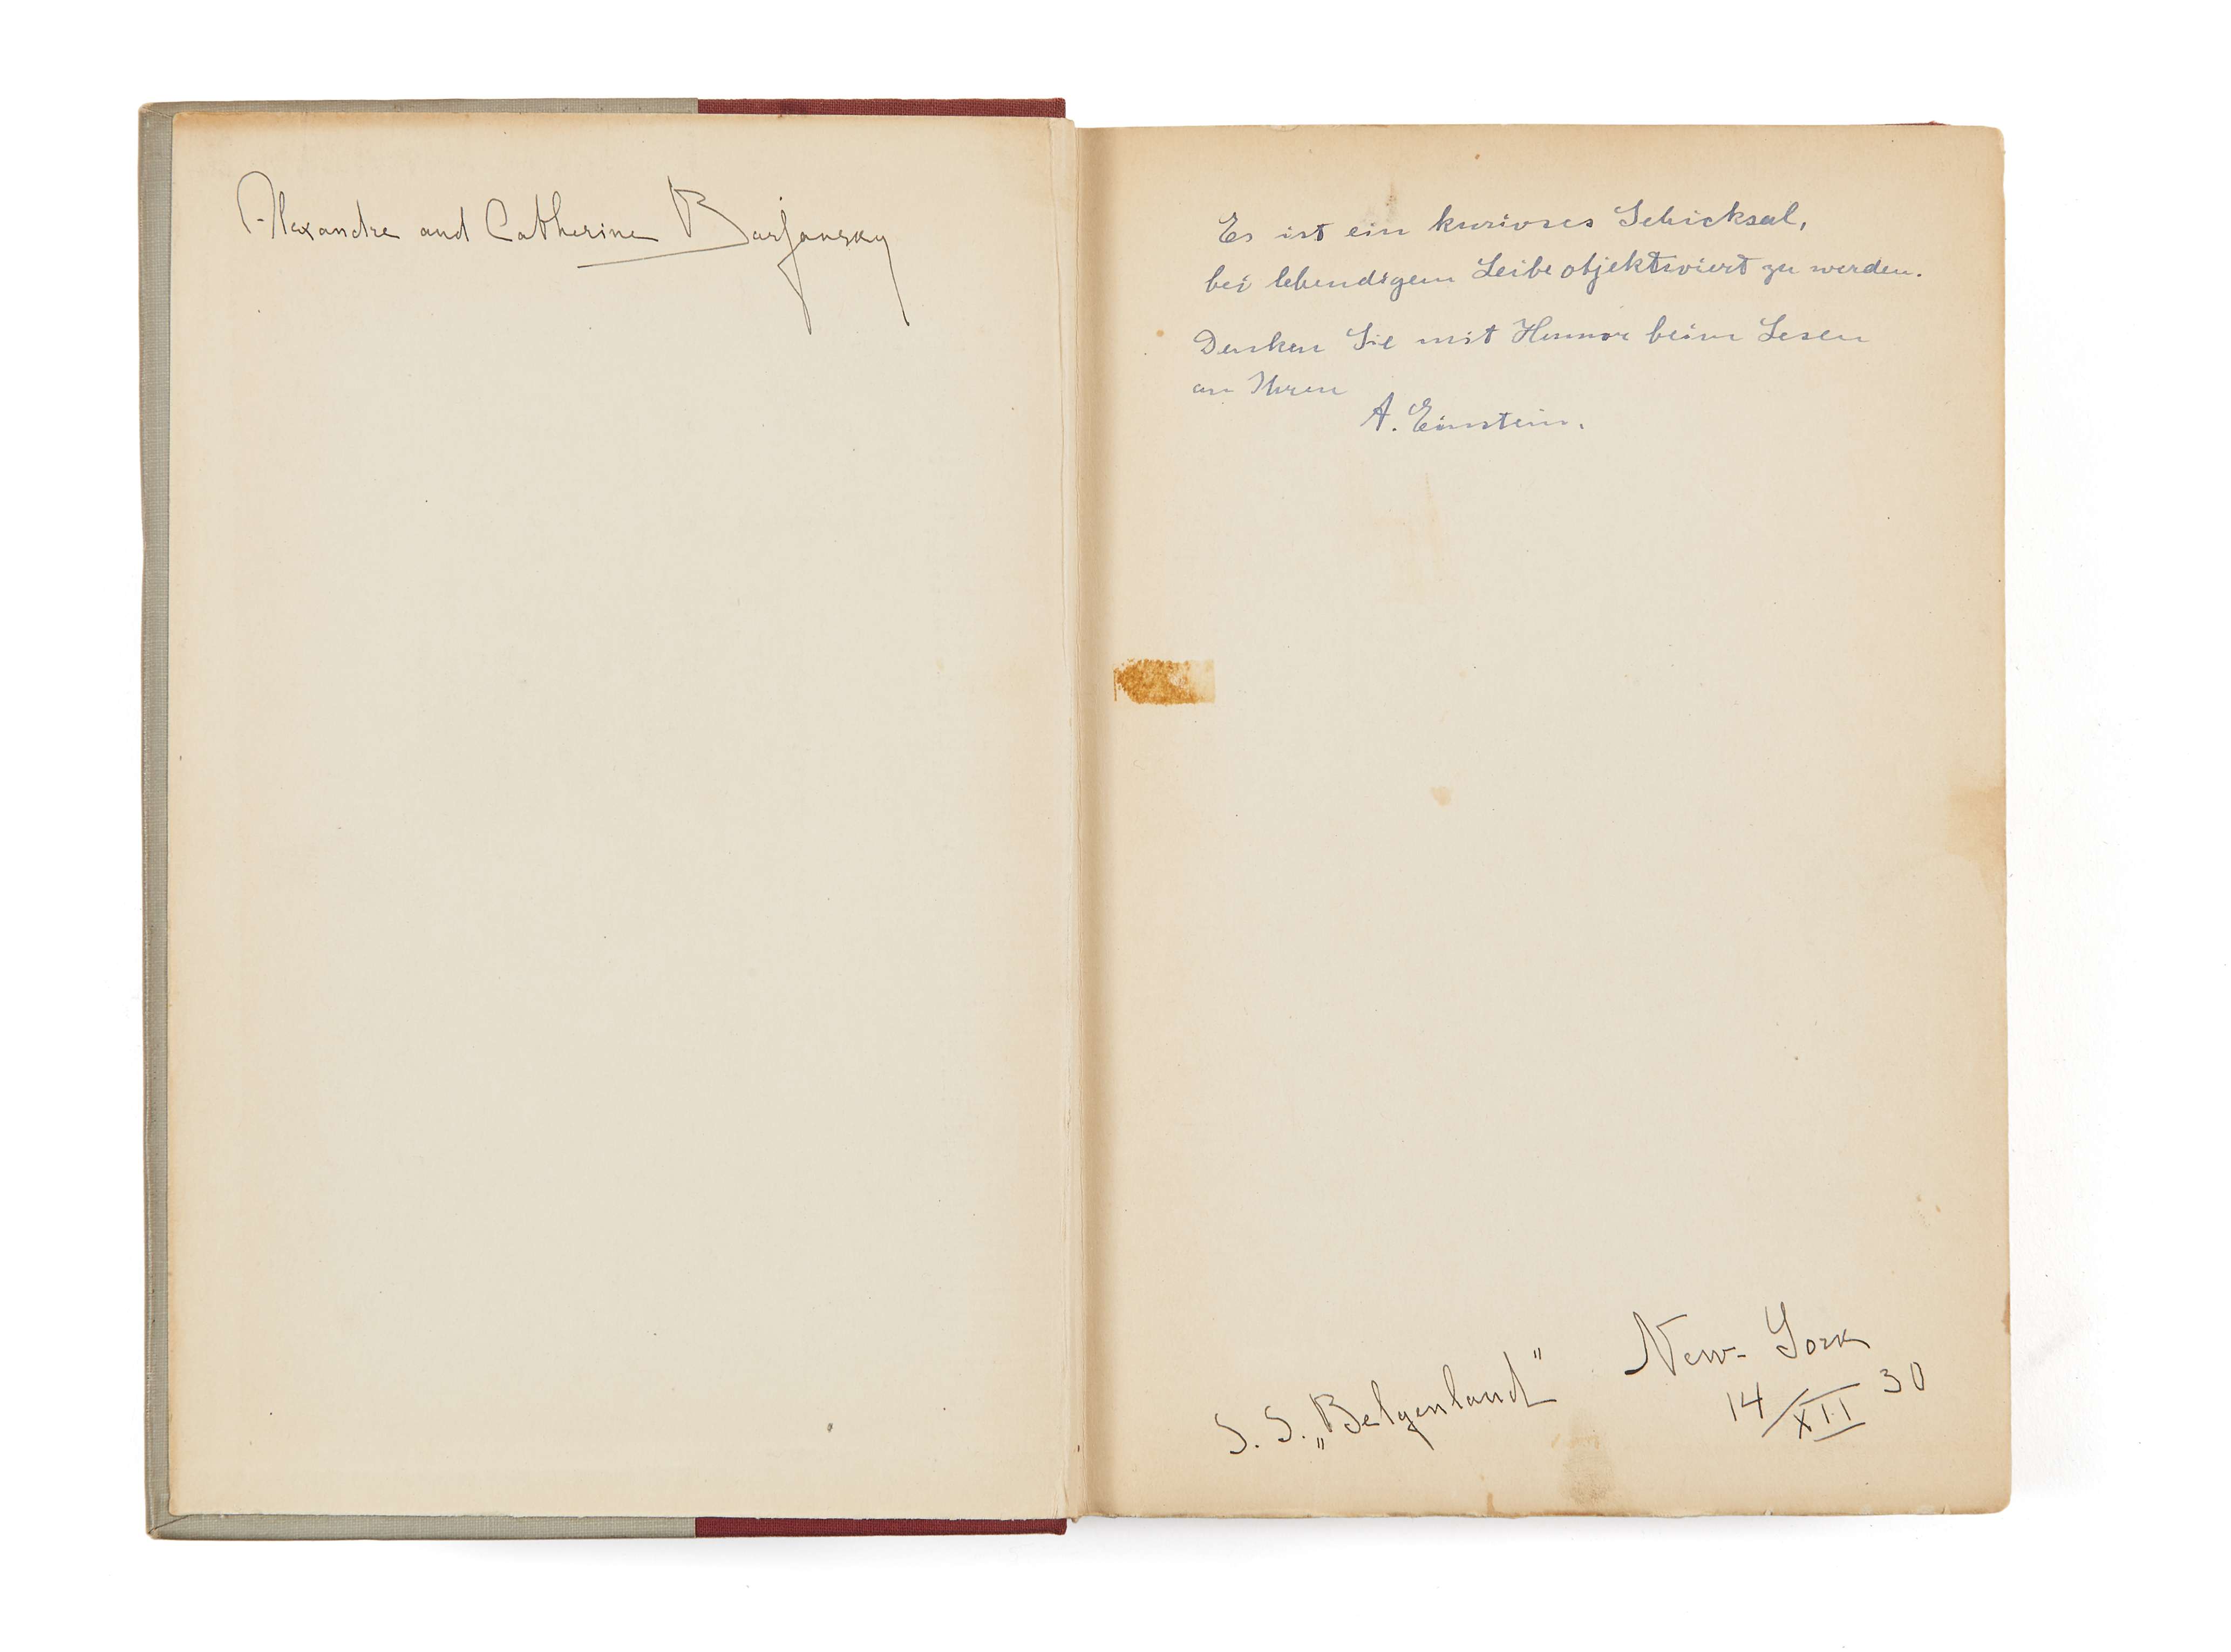 Alexandre and Catherine Barjansky
Es ist ein kurioses Schicksal,
bei lebendigem Leibe objektiviert zu werden.
Denken Sie mit Humor beim Lesen
an Ihren
A. Einstein.
S. S. „Belgenland" New-York
14/XII 30